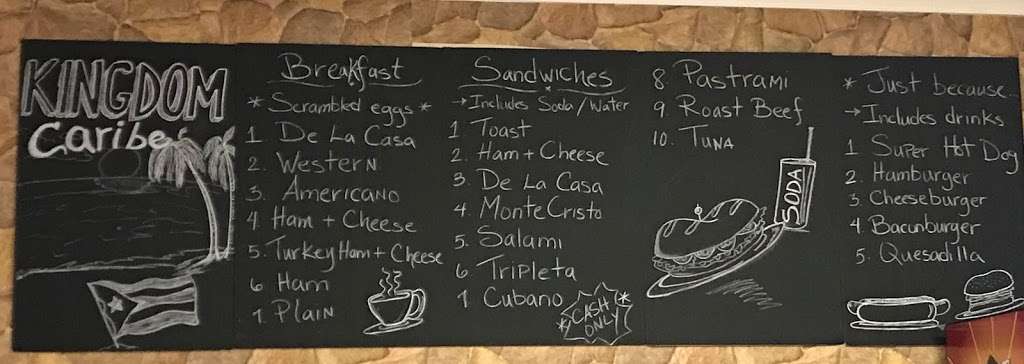 KINGDOM
Caribe
Breakfast
* Scrambled eggs *
1. De La Casa
2. Western
3. Americano
4. Ham + Cheese
5. Turkey Ham + Cheese
6 Ham
7. Plain
Sandwiches
→ Includes Soda / Water
1. Toast
2. Ham + Cheese
3. De La Casa
4. Monte Cristo
5. Salami
6. Tripleta
7. Cubano
* CASH ONLY *
8 Pastrami
9. Roast Beef
10. Tuna
SODA
* Just because...
→ Includes drinks
1 Super Hot Dog
2. Hamburger
3 Cheeseburger
4 Baconburger
5. Quesadilla